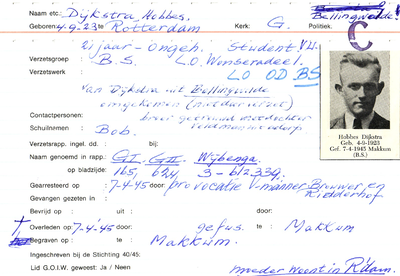 Naam etc. Dijkstra, Hobbes. Bellingwolde!
Geboren 4-9-23 te Rotterdam Kerk: G. Politiek.
21 jaar - ongeh. Student VU. C
Verzetsgroep B.S. L.O. Wonseradeel.
Verzetswerk LO OD BS
Van Dijkstra uit Bellingwolde
omgekomen (niet door verzet)
Contactpersonen: broer getrouwd met dochter
Schuilnamen Bob. veldmacht
Verzetsrapp. ingel. dd. : bij:
Naam genoemd in rapp.: GI, GII, Wybenga
op bladzijde 165, 624, 3-612.339.
Gearresteerd op 7-4-45 door: provocatie V-mannen Brouwer en
Ridderhof
Gevangen gezeten in :
Bevrijd op : uit : door:
Overleden op 7-4-'45 door: gefus. te: Makkum
Begraven op : te: Makkum.
Ingeschreven bij de Stichting 40/45:
Lid G.O.I.W. geweest: Ja / Neen moeder woont in R'dam.
Hobbes Dijkstra
Geb. 4-9-1923
Gef. 7-4-1945 Makkum
(B.S.)